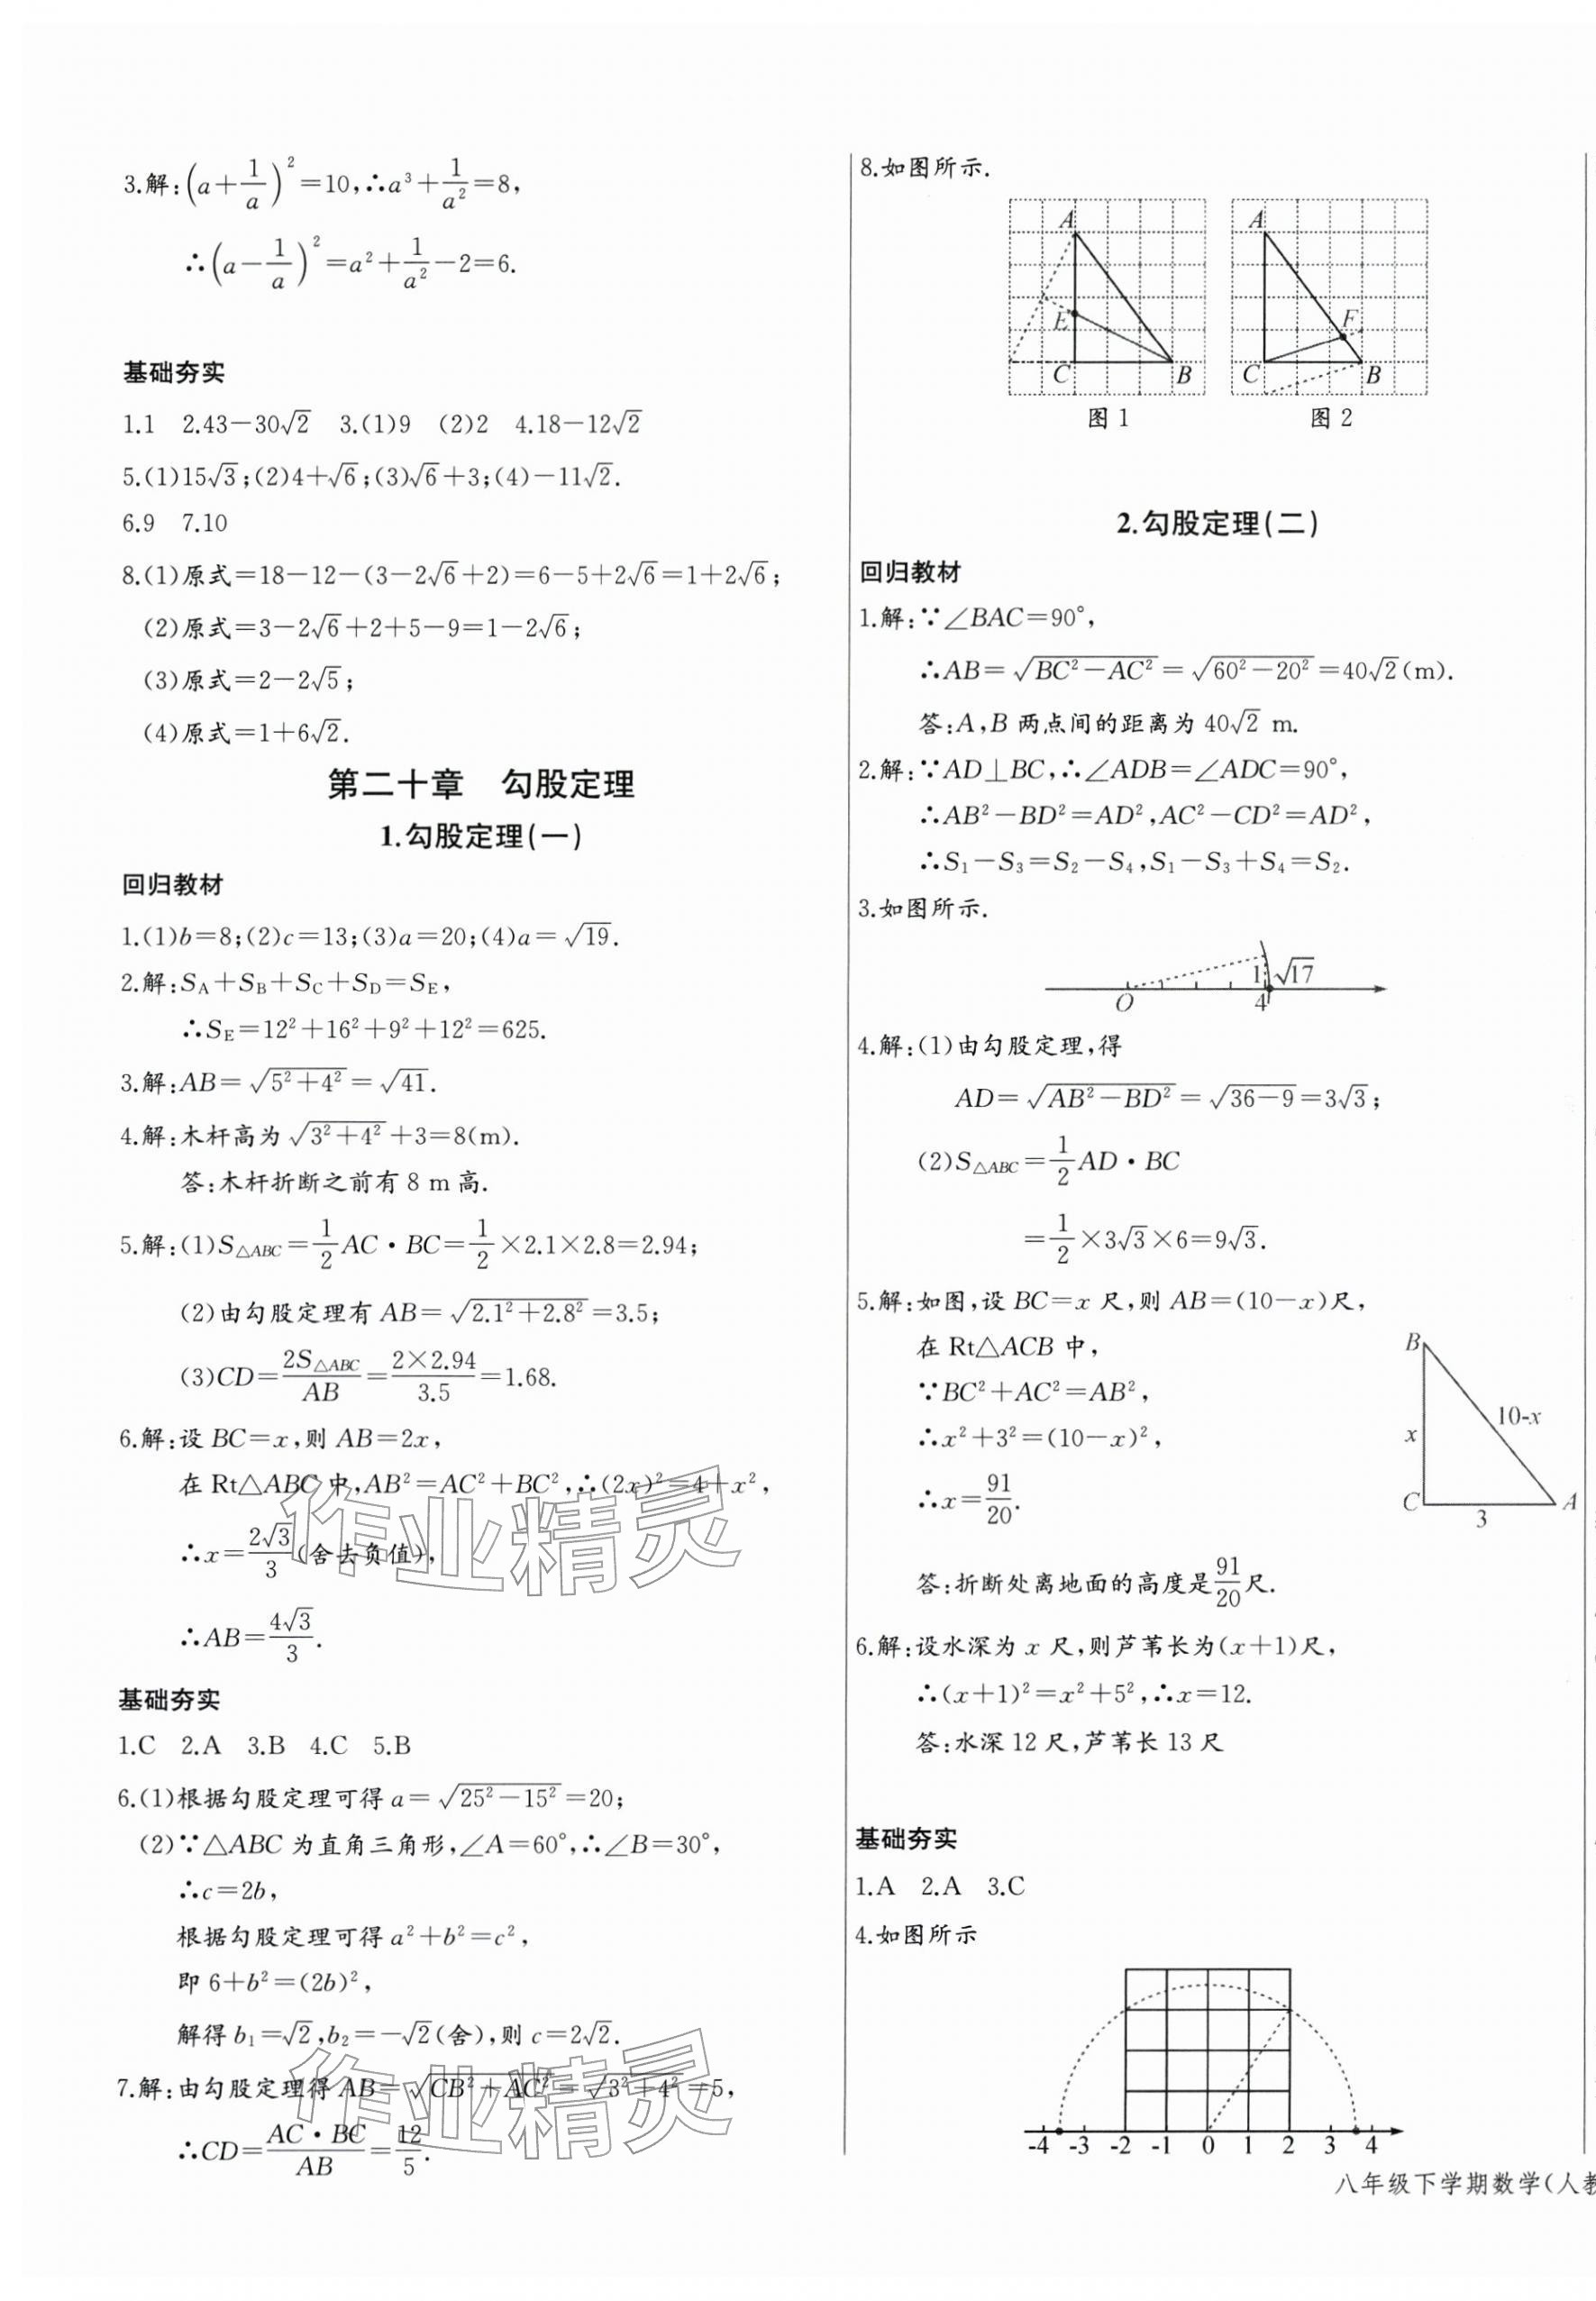 3.解:(a+1/a)²=10,∴a³+1/a²=8,
∴(a-1/a)²=a²+1/a²-2=6.
基础夯实
1.1 2.43-30√2 3.(1)9 (2)2 4.18-12√2
5.(1)15√3;(2)4+√6;(3)√6+3;(4)-11√2.
6.9 7.10
8.(1)原式=18-12-(3-2√6+2)=6-5+2√6=1+2√6;
(2)原式=3-2√6+2+5-9=1-2√6;
(3)原式=2-2√5;
(4)原式=1+6√2.
第二十章 勾股定理
1.勾股定理(一)
回归教材
1.(1)b=8;(2)c=13;(3)a=20;(4)a=√19.
2.解:S_A+S_B+S_C+S_D=S_E,
∴S_E=12²+16²+9²+12²=625.
3.解:AB=√(5²+4²)=√41.
4.解:木杆高为√(3²+4²)+3=8(m).
答:木杆折断之前有8 m高.
5.解:(1)S△ABC=1/2AC·BC=1/2×2.1×2.8=2.94;
(2)由勾股定理有AB=√(2.1²+2.8²)=3.5;
(3)CD=2S△ABC/AB=2×2.94/3.5=1.68.
6.解:设BC=x,则AB=2x,
在Rt△ABC中,AB²=AC²+BC²,∴(2x)²=4+x²,
∴x=2√3/3(舍去负值),
∴AB=4√3/3.
作业精灵
基础夯实
1.C 2.A 3.B 4.C 5.B
6.(1)根据勾股定理可得a=√(25²-15²)=20;
(2)∵△ABC为直角三角形,∠A=60°,∴∠B=30°,
∴c=2b,
根据勾股定理可得a²+b²=c²,
即6+b²=(2b)²,
解得b₁=√2,b₂=-√2(舍),则c=2√2.
7.解:由勾股定理得AB=√(CB²+AC²)=√(3²+4²)=5,
∴CD=AC·BC/AB=12/5.
作业精灵
8.如图所示.
A E C B
图1
A F C B
图2
2.勾股定理(二)
回归教材
1.解:∵∠BAC=90°,
∴AB=√(BC²-AC²)=√(60²-20²)=40√2(m).
答:A,B两点间的距离为40√2 m.
2.解:∵AD⊥BC,∴∠ADB=∠ADC=90°,
∴AB²-BD²=AD²,AC²-CD²=AD²,
∴S₁-S₃=S₂-S₄,S₁-S₃+S₄=S₂.
3.如图所示.
1 √17
O 4
4.解:(1)由勾股定理,得
AD=√(AB²-BD²)=√(36-9)=3√3;
(2)S△ABC=1/2AD·BC
=1/2×3√3×6=9√3.
5.解:如图,设BC=x尺,则AB=(10-x)尺,
在Rt△ACB中,
∵BC²+AC²=AB²,
∴x²+3²=(10-x)²,
∴x=91/20.
B
10-x
x
C 3 A
答:折断处离地面的高度是91/20尺.
6.解:设水深为x尺,则芦苇长为(x+1)尺,
∴(x+1)²=x²+5²,∴x=12.
答:水深12尺,芦苇长13尺
基础夯实
1.A 2.A 3.C
4.如图所示
-4 -3 -2 -1 0 1 2 3 4
八年级下学期数学(人教